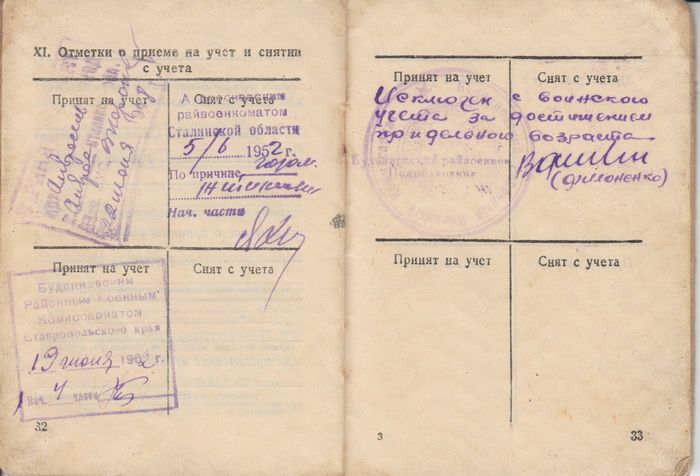 XI. Отметки о приеме на учет и снятии
с учета
Принят на учет
22 июня
Снят с учета
райвоенкоматом
Сталинской области
5/6 1952 г.
По причине
Нач. части
Принят на учет
Буденновским
Районным Военным
Комиссариатом
Ставропольского края
19 июня 1962 г.
Нач. 4 части
Снят с учета
32
Принят на учет
Снят с учета
Исключен с воинского
учета за достижением
предельного возраста
Буденновский райвоенком
Подполковник
Принят на учет
Снят с учета
3
33